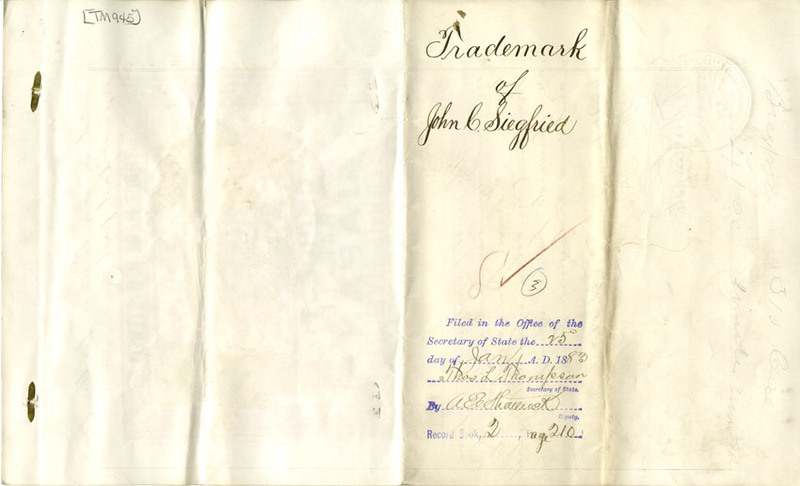 [TM945]
Trademark
of
John C. Siegfried
3
Filed in the Office of the
Secretary of State the 25
day of Jan A. D. 1883
Thos. L. Thompson
Secretary of State.
By
Deputy.
Record Book, 2, Page 210